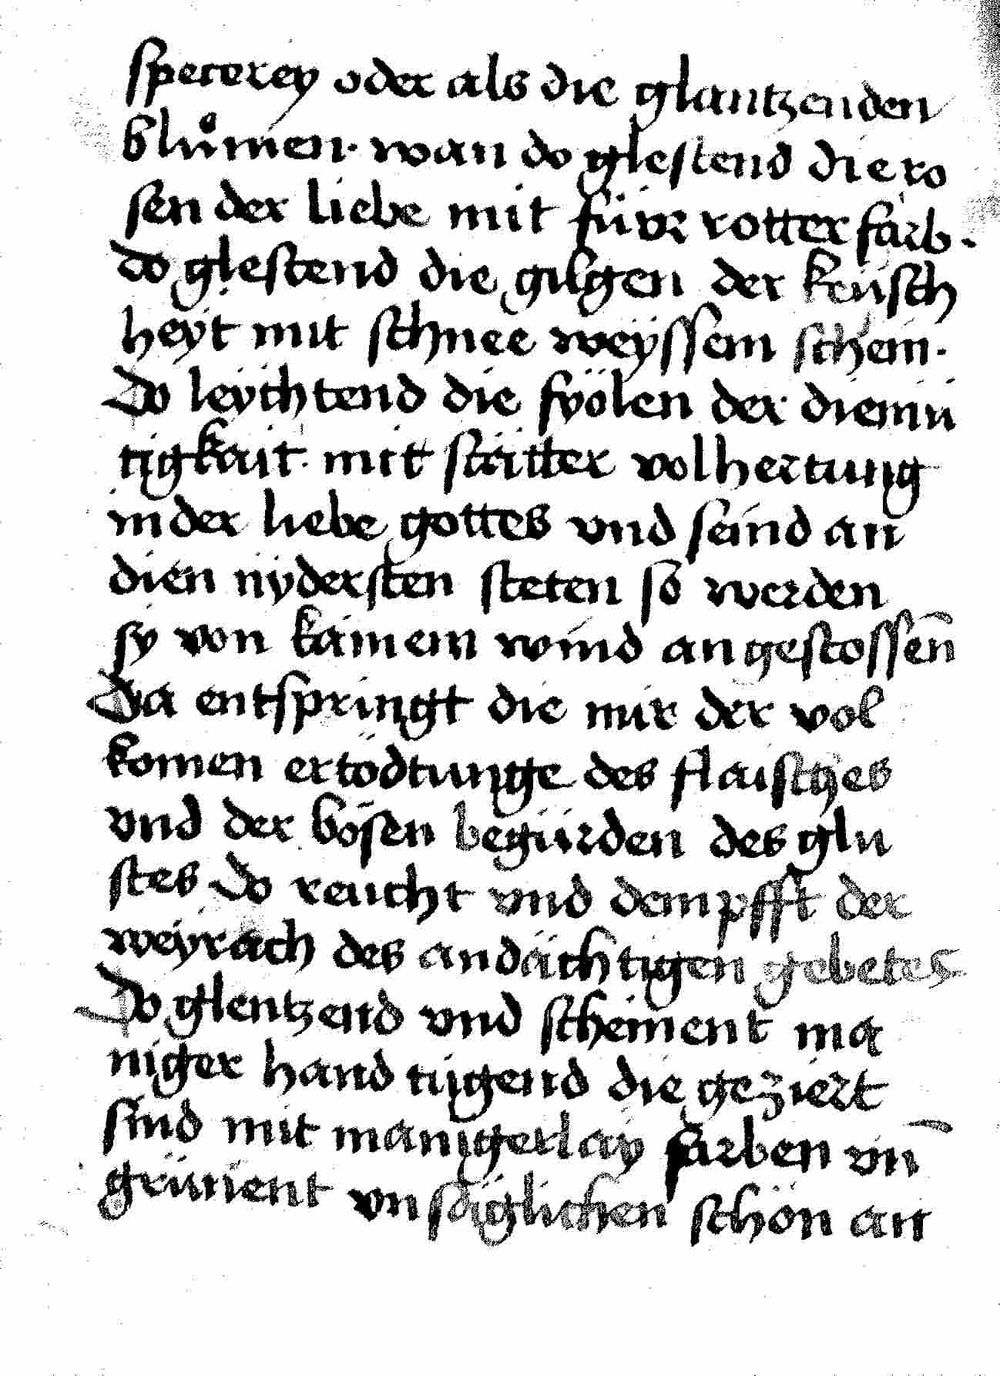 specerey oder als die glantzenden
blůmen. wan do glestend die ro
sen der liebe mit fúvr rotter farb.
do glestend die gilgen der keüsch
heyt mit schnee weyssem schein.
Do leychtend die fyölen der diemü
tigkait mit stätter volhertung
in der liebe gottes vnd seind an
dien nydersten steten so werden
sy von kainem wind angestossen̄
Da entspringt die mir der vol
komen ertödtunge des flaisches
vnd der bösen begürden des glu
stes Do reucht vnd dempfft der
weyrach des andächtigen gebetes
Do glentzend vnd scheinent ma
niger hand tugend die geziert
sind mit manigerlay farben vn̄
grünent vnsäglichen schön an